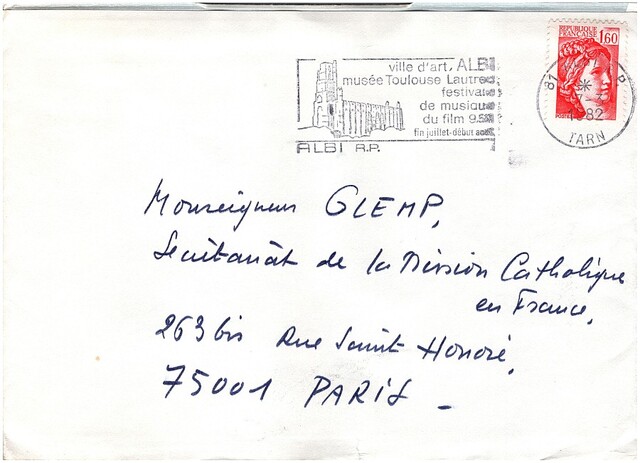 REPUBLIQUE
FRANCAISE
1,60
ville d'art, ALBI
musée Toulouse Lautrec
festivals
de musique
du film 9.5
fin juillet-début août
ALBI R.P.
81
82
TARN
Monseigneur GLEMP,
Secrétariat de la Mission Catholique
en France,
263 bis Rue Saint Honoré,
75001 PARIS -